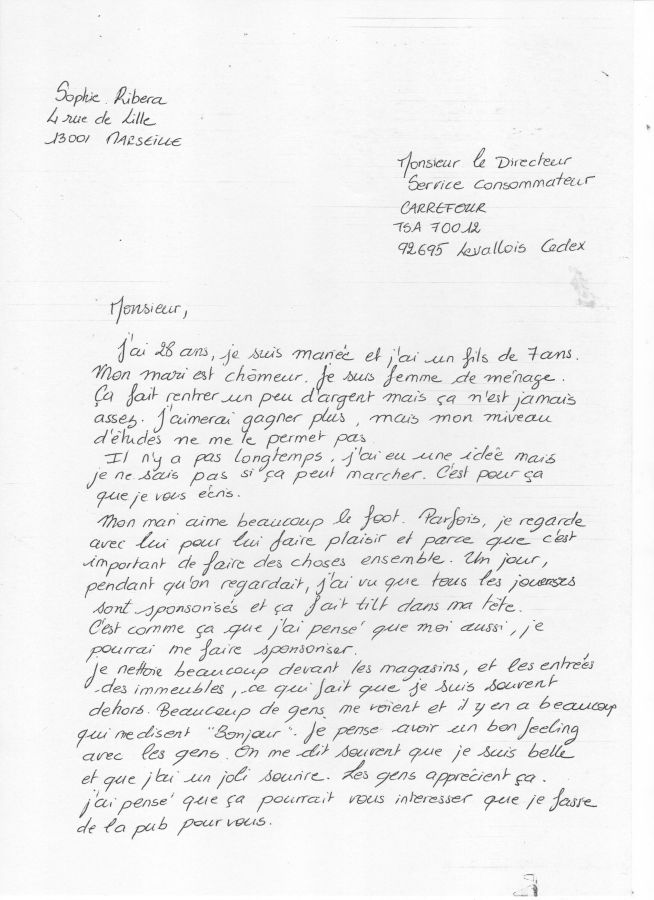 Sophie Ribera
4 rue de Lille
13001 MARSEILLE
Monsieur le Directeur
Service Consommateur
CARREFOUR
TSA 70012
92695 Levallois Cedex
Monsieur,
J'ai 28 ans, je suis mariée et j'ai un fils de 7 ans.
Mon mari est chômeur. Je suis femme de ménage.
Ça fait rentrer un peu d'argent mais ça n'est jamais
assez. J'aimerai gagner plus, mais mon niveau
d'études ne me le permet pas.
Il n'y a pas longtemps, j'ai eu une idée mais
je ne sais pas si ça peut marcher. C'est pour ça
que je vous écris.
Mon mari aime beaucoup le foot. Parfois, je regarde
avec lui pour lui faire plaisir et parce que c'est
important de faire des choses ensemble. Un jour,
pendant qu'on regardait, j'ai vu que tous les joueurs
sont sponsorisés et ça fait tilt dans ma tête.
C'est comme ça que j'ai pensé que moi aussi, je
pourrai me faire sponsoriser.
Je nettoie beaucoup devant les magasins, et les entrées
des immeubles, ce qui fait que je suis souvent
dehors. Beaucoup de gens me voient et il y en a beaucoup
qui me disent "Bonjour". Je pense avoir un bon feeling
avec les gens. On me dit souvent que je suis belle
et que j'ai un joli sourire. Les gens apprécient ça.
J'ai pensé que ça pourrait vous interesser que je fasse
de la pub pour vous.